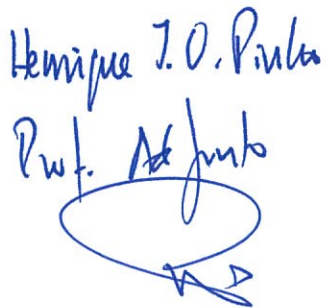 Henrique J. O. Pinho
Prof. Adjunto